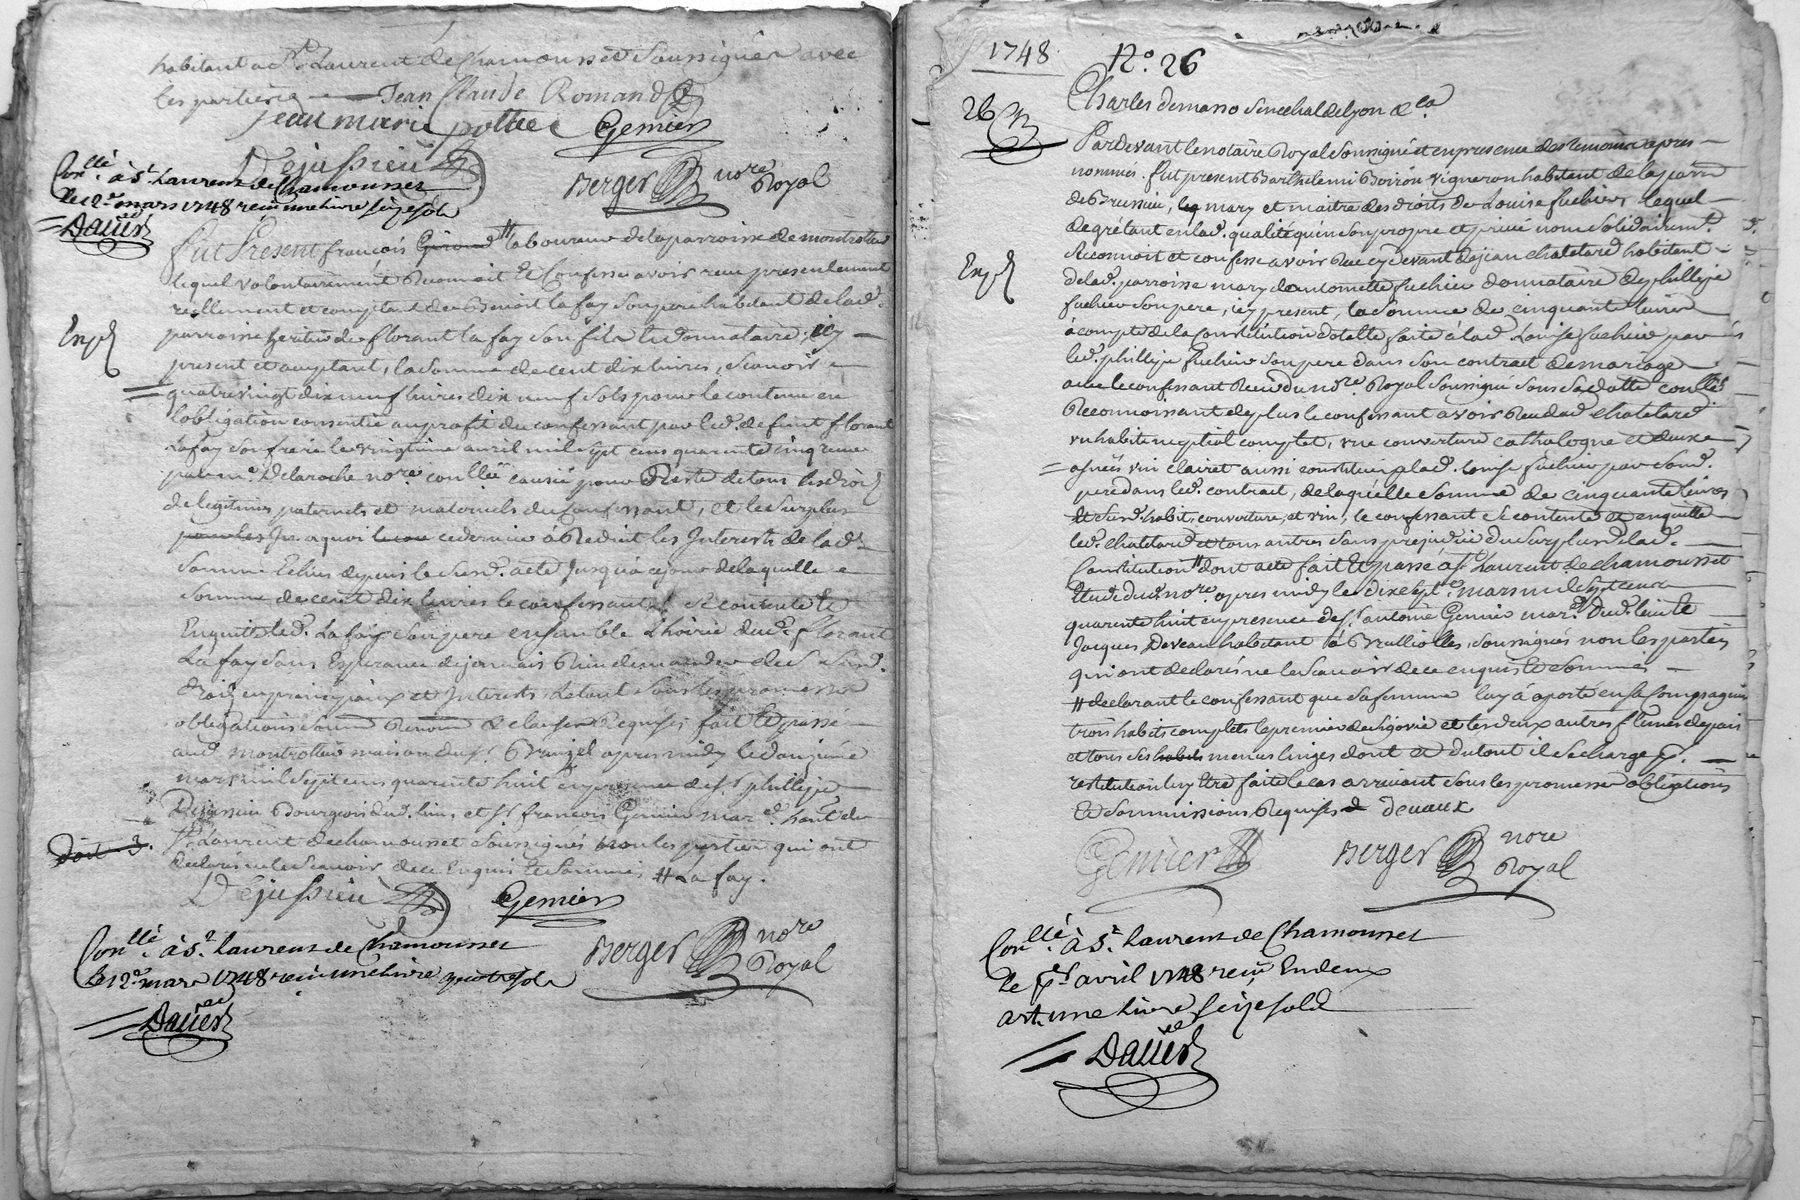 habitant a St Laurent de Chamousset Soussignés avec
les parties Jean Claude Romand
jean marie pottee Gemier
Dejussieu
Berger nore Royal
Conllé à St Laurent de Chamousset
le 12e mars 1748 reçu une livre seize sols
Dauer
fut Present francois laboureur de la parroisse de montrottier
lequel volontairement Reconnoit et Confesse avoir receu presentement
reellement et comptant de Benoit la fay son pere habitant de lad.
Expé
parroisse heritier de florant la fay son fils et donnataire, icy
present et acceptant, la somme de cent dix livres, scavoir
quatrevingt dix neuf livres dix neuf sols pour le contenu en
l'obligation consentie au profit du confessant par led. defunt florant
Lafay son frere le vingtieme avril mil sept cens quarente cinq receue
par me Delaroche nore conllée causée pour Reste de tous les droits
de legitimes paternels et maternels du Confessant, et le surplus
pour les Jn aquoi cedernier à Reduit les Interests de lad.
somme Echus depuis le susd. acte jusqu'à ce jour de laquelle
somme de cent dix livres le confessant se contente et
Enquitte led. Lafay son pere ensemble L'hoirie dud. florant
La fay sans Esperance de jamais Rien demander des susd.
droits en principaux et Interests, Le tout sous les promesses
obligations soum Renon et clauses Requises fait et passé
aud. montrottier maison du sr Bruizel apres midy le douzieme
mars mil sept cens quarente huit en presence de sr phillipe
Dejussieu Bourgeois dud. lieu, et sr francois Gemier mar.d hant de
Doit 3.
St Laurent de chamousset soussignés non les parties qui ont
declaré ne le scavoir de ce Enquis et sommés # La fay.
Dejussieu Gemier
Conllé à St Laurent de Chamousset
le 12e mars 1748 reçu une livre quatre sols
Berger nore Royal
Dauer
1748 No. 26
Charles demasso Senechal de Lyon &ca
26
Pardevant le notaire Royal soussigné et en presence des temoins apres
nommés fut present Barthelemi Boiron vigneron habitant de la parre
de Brussieu, mary et maitre des droits de Louise fuchier lequel
degré tant en lad. qualité qu'en son propre et privé nom solidairemt.
Expé
Reconnoit et confesse avoir Receu cy devant de jean chatelard habitant
de lad. parroisse mary d'antoinette fuchier donnataire de phillipe
fuchier son pere, icy present, la somme de cinquante livres
à compte de la Constitution dotalle faite à lad. Louise fuchier par
led. phillipe fuchier son pere dans son contrat de mariage
avec le confessant Receu du nore Royal soussigné sous sa datte conllé
Reconnoissant de plus le confessant avoir Receu dud. chatelard
un habit nuptial complet, une couverture cathalogne et deux
asnées vin clairet aussi constitués à lad. Louise fuchier par sond.
pere dans led. contrat, de laquelle somme de cinquante livres
et susd. habit, couverture, et vin, le confessant se contente et enquitte
led. chatelard et tous autres sans prejudice du surplus de lad.
Constitution # dont acte fait et passé à St Laurent de chamousset
Etude dud. nore apres midy le dix sept mars mil sept cens
quarente huit en presence de sr antoine Gemier mar.d dud. lieu et
Jacques Deveaux habitant à Brulliolles, soussignés non les parties
qui ont declarés ne le scavoir de ce enquis et sommés
# declarant le confessant que sa femme luy a aporté en sa compagnie
trois habits complets le premier de Ligovie et les deux autres
et tous ses habits menus linges dont et du tout il se charge pr.
restitution luy etre faite le cas arrivant sous les promesses obligations
et sommissions Requises devaux
Gemier Berger nore Royal
Conllé à St Laurent de Chamousset
le pr avril 1748 reçu En deux
art. une livre seize sols
Dauer